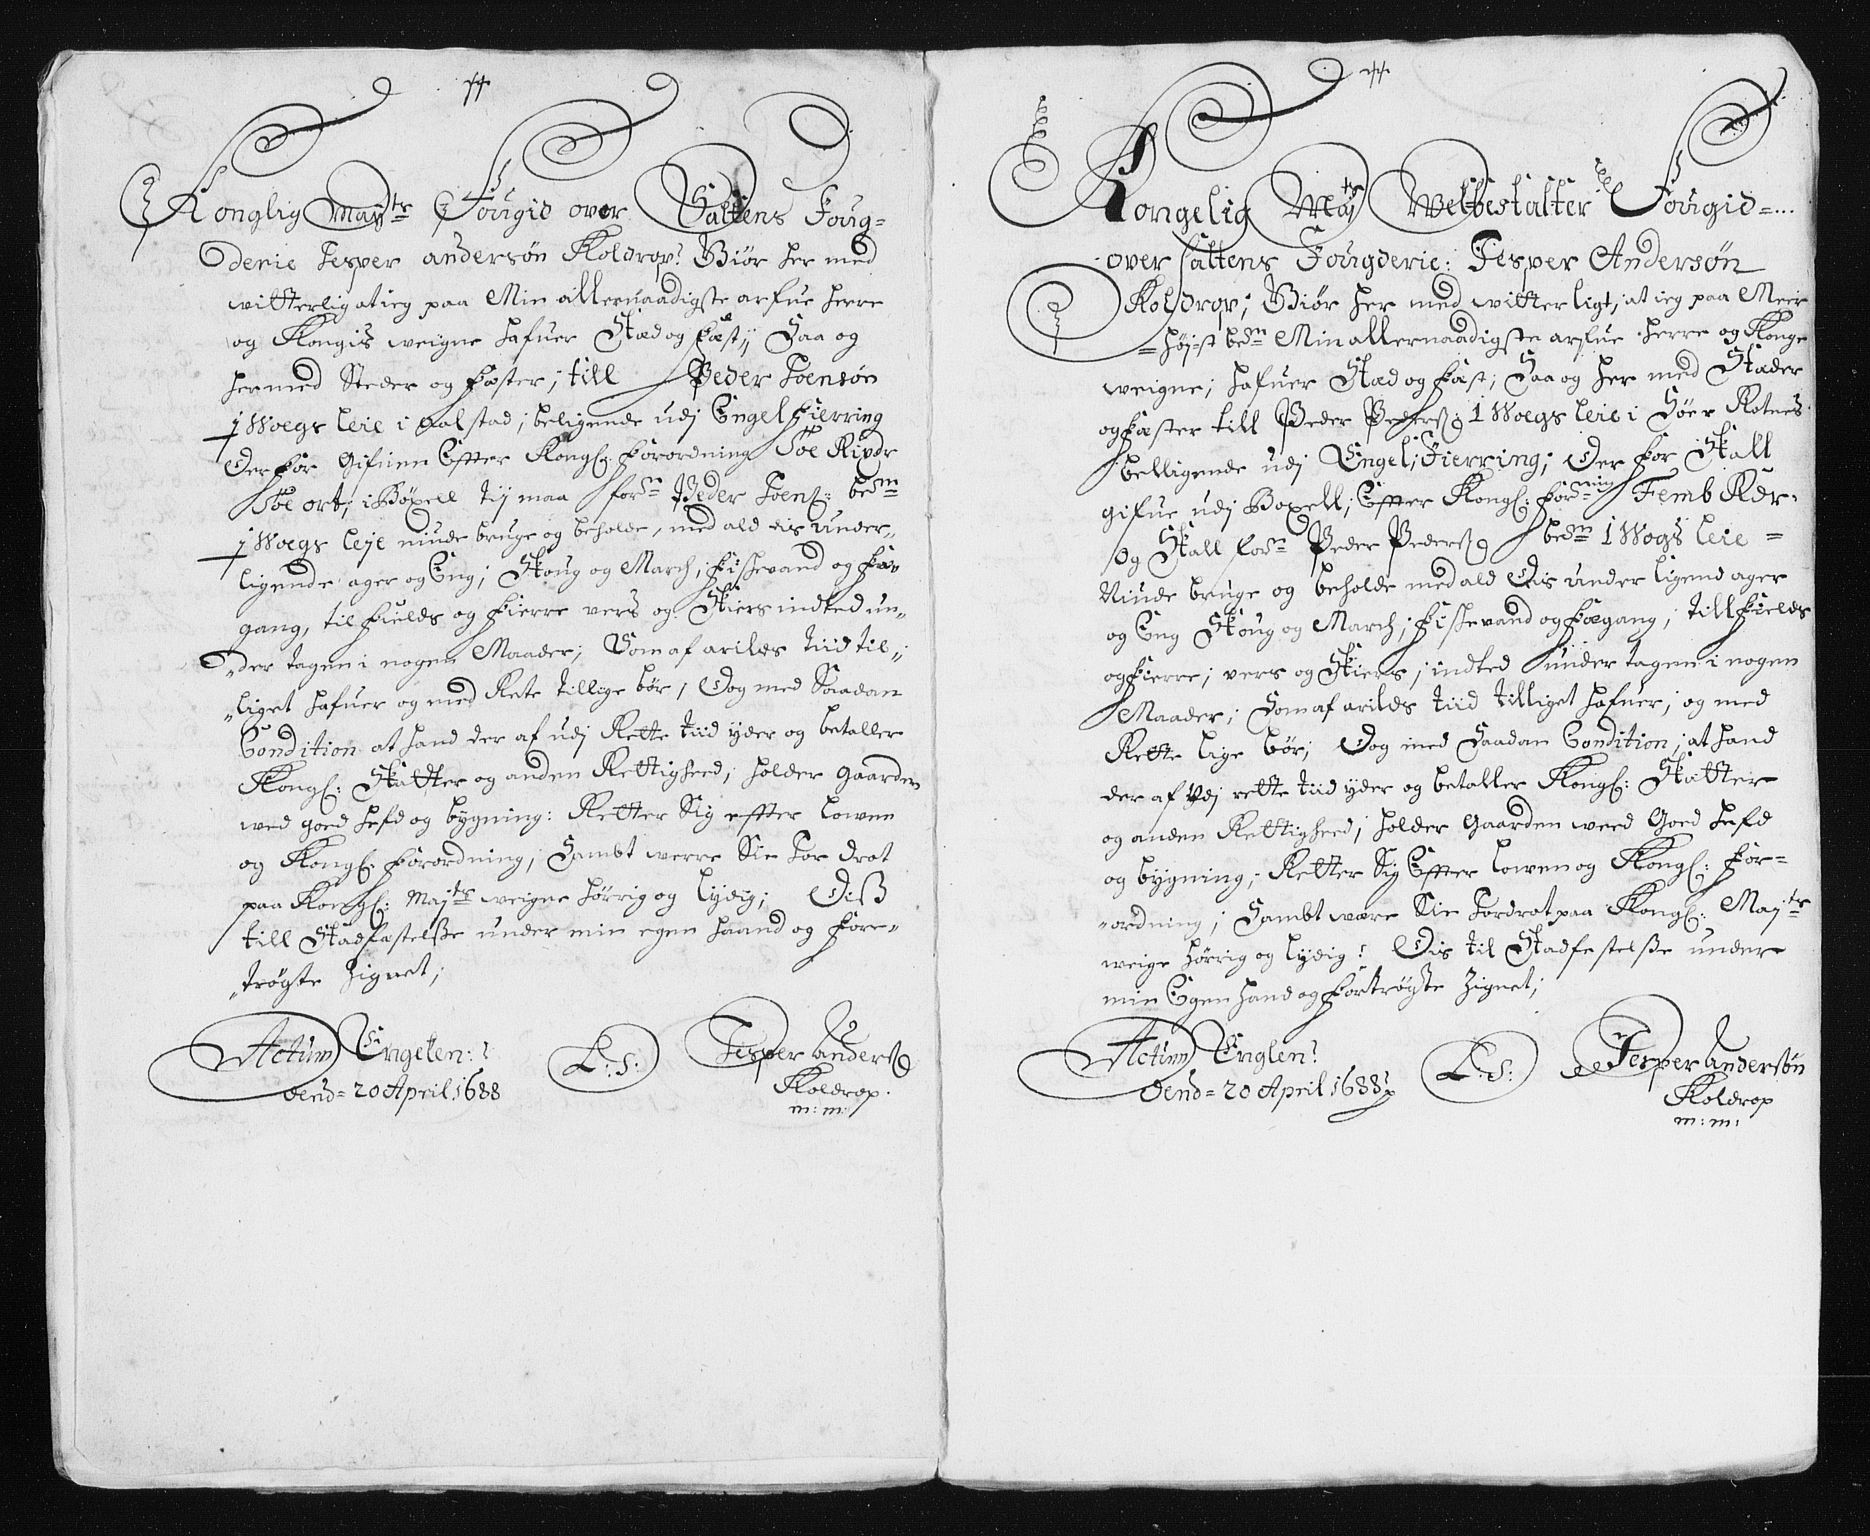 Konglig Mayts Fougid over Saltens Foug-
derie Jesper andersøn Koldrop: Giør her med
vitterlig at ieg paa Min allernaadigste arfue herre
og Kongis weigne hafuer Sted og fæst; Saa og
hermed Steder og fæster; till Peder Joensøn
1 Woegs leie i Valstad; beligende udj Engel fierring
Derfor Gifuen Effter Kongl: forordning Toe Rixdr
Toe ort; i Bøxell tij maa forn Peder Joens: bedm
1 Woegs leje niude bruge og beholde, med ald dis under„
ligende ager og Eng; Skoug og March, fiskevand og fæe
gang, til fields og fierre vers og Skiers indted un„
„der tagen i nogen Maader; Som af arilds tiid til„
„liget hafuer og med Rete tillige bør, Dog med Saadan
Condition at hand der af udj Rette tiid yder og betaller
Kongl: Skatter og anden Rettigheed, holder gaarden
wed goed hefd og bygning: Retter Sig effter lowen
og Kongl: forordning, Sambt werre Sin For drot
paa Kongl: Majts weigne hørrig og lydig; Diß
till Stadfæstelße under min egen haand og fore„
„trøgte Zignet;
Actum Engelen:
dend= 20 April 1688
L: S:
Jesper Anders:
Koldrop.
m: m:
Kongelig Mayts Welbestalter Fougid=
over saltens Fougderie: Jesper Andersøn
Koldrop; Giør her med witterligt, at ieg paa Meer
=høj=st bedm Min allernaadigste arfue herre og Konge
weigne; hafuer Sted og fæst; Saa og her med Steder
og fæster till Peder Peders: 1 Woegs leie i Søer Rotnes
belligende udj Engel; Fierring; Der for Skall
gifue udj Boxell; Effter Kongl: forning Femb Rdr.
Og Skall forn Peder Peders: bedm 1 Wogs leie =
Niude bruge og beholde med ald Dis under ligend ager
og Eng Skoug og March; fiskevand og fægang; till fields
og fierre; vers og Skiers; indted under tagen i nogen
Maader; Som af arilds tiid tilliget hafuer; og med
Rette lige bør; Dog med Saadan Condition; at hand
der af Udj rette tiid yder og betaller Kongl: Skatter
og anden Rettigheed; holder Gaarden weed Goed hefd
og bygning; Retter Sig Effter lowen og Kongl: for=
„ordning; Sambt wære Sin Fordrot paa Kongl: Majts
weige hørrig og lydig: Dis til Stadfestelße under
min Egen hand og fortrøgte Zignet;
Actum Englen:
Dend= 20 April 1688
L: S:
Jesper Andersøn
Koldrop
m: m: